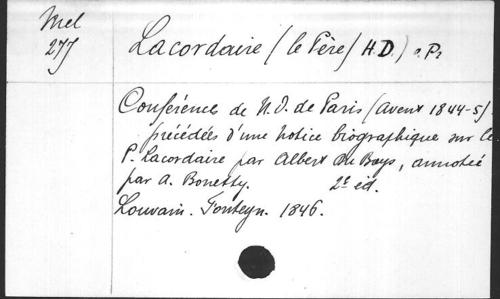 Mel
277
Lacordaire (le Père/ H.D.) o.Pr
Conférences de N.D. de Paris (Avent 1844-5)
précédées d'une notice biographique sur le
P. Lacordaire par Albert Du Boys, annotée
par A. Bonetty. 2e éd.
Louvain. Fonteyn. 1846.